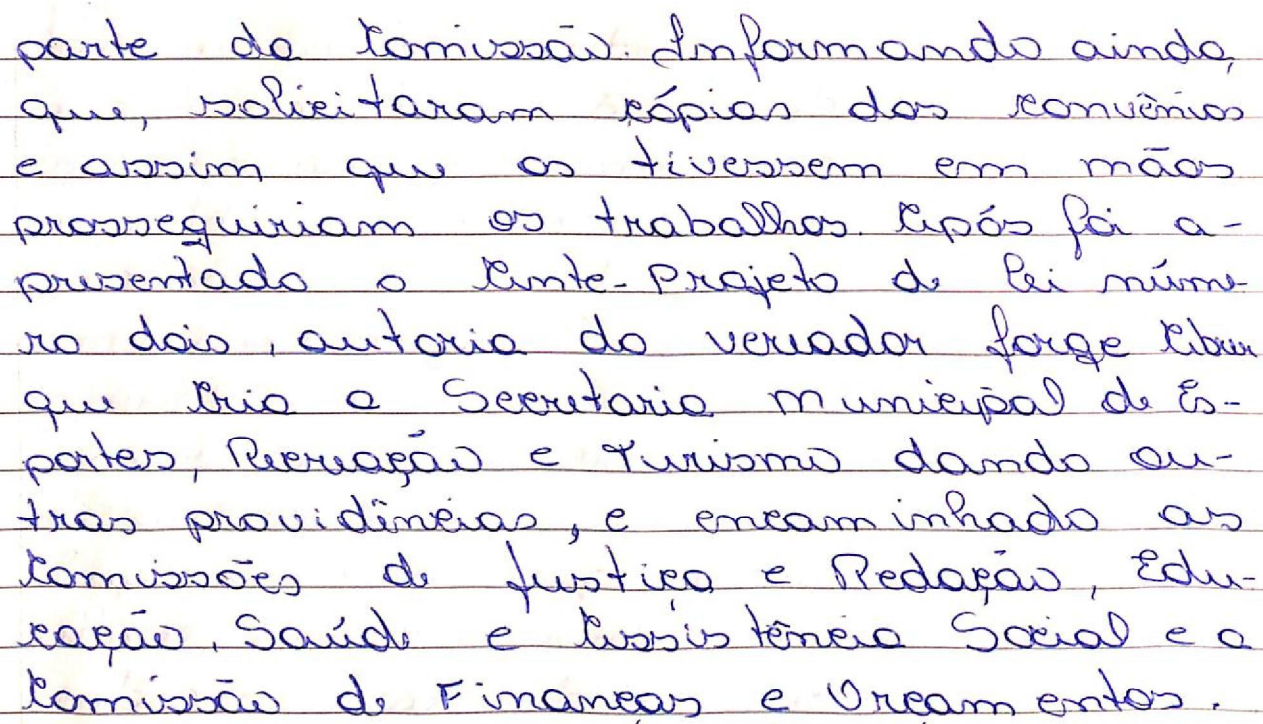 parte da Comissão. Informando ainda,
que, solicitaram cópias dos convênios
e assim que os tivessem em mãos
prosseguiriam os trabalhos. Após foi a-
presentado o Ante-Projeto de lei núme-
ro dois, autoria do vereador Jorge
que Cria a Secretaria Municipal de Es-
portes, Recreação e Turismo dando ou-
tras providências, e encaminhado as
Comissões de Justiça e Redação, Edu-
cação, Saúde e Assistência Social e a
Comissão de Finanças e Orçamentos.